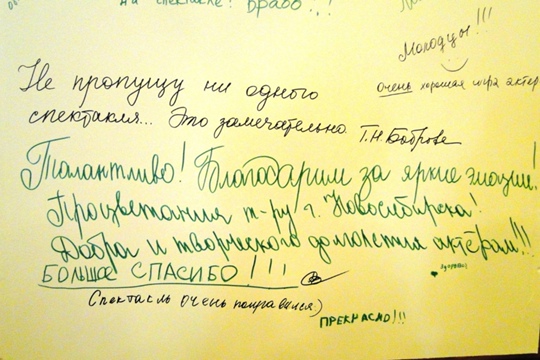 на спектакле! Браво..!
Молодцы!!!
очень хорошая игра актер
Не пропущу ни одного
спектакля... Это замечательно Т.Н. Боброва
Талантливо! Благодарим за яркие эмоции!
Процветания т-ру г. Новосибирска!
Добра и творческого долголетия актёрам!!!
здоровья
БОЛЬШОЕ СПАСИБО!!!
Спектакль очень понравился:)
ПРЕКРАСНО!!!